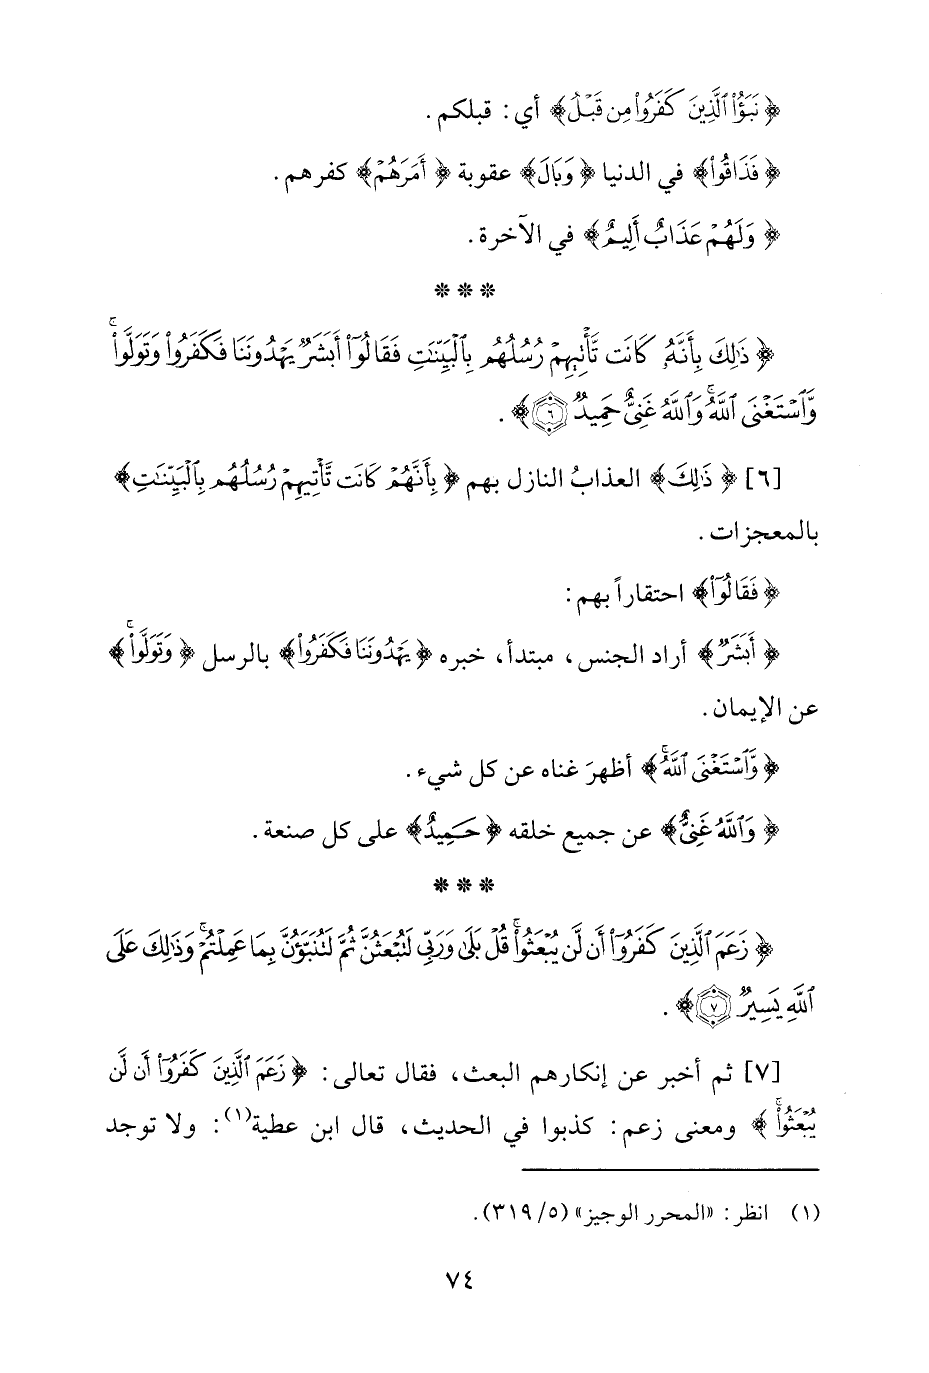 ﴿نَبَؤُا۟ ٱلَّذِينَ كَفَرُوا۟ مِن قَبْلُ﴾ أي: قبلكم.
﴿فَذَاقُوا۟﴾ في الدنيا ﴿وَبَالَ﴾ عقوبة ﴿أَمْرِهِمْ﴾ كفرهم.
﴿وَلَهُمْ عَذَابٌ أَلِيمٌ﴾ في الآخرة.
* * *
﴿ذَٰلِكَ بِأَنَّهُۥ كَانَت تَّأْتِيهِمْ رُسُلُهُم بِٱلْبَيِّنَٰتِ فَقَالُوٓا۟ أَبَشَرٌ يَهْدُونَنَا فَكَفَرُوا۟ وَتَوَلَّوا۟ۚ
وَّٱسْتَغْنَى ٱللَّهُۚ وَٱللَّهُ غَنِىٌّ حَمِيدٌ ٦﴾.
[٦] ﴿ذَٰلِكَ﴾ العذابُ النازل بهم ﴿بِأَنَّهُمْ كَانَت تَّأْتِيهِمْ رُسُلُهُم بِٱلْبَيِّنَٰتِ﴾
بالمعجزات.
﴿فَقَالُوٓا۟﴾ احتقاراً بهم:
﴿أَبَشَرٌ﴾ أراد الجنس، مبتدأ، خبره ﴿يَهْدُونَنَا فَكَفَرُوا۟﴾ بالرسل ﴿وَتَوَلَّوا۟ۚ﴾
عن الإيمان.
﴿وَّٱسْتَغْنَى ٱللَّهُۚ﴾ أظهرَ غناه عن كل شيء.
﴿وَٱللَّهُ غَنِىٌّ﴾ عن جميع خلقه ﴿حَمِيدٌ﴾ على كل صنعة.
* * *
﴿زَعَمَ ٱلَّذِينَ كَفَرُوٓا۟ أَن لَّن يُبْعَثُوا۟ۚ قُلْ بَلَىٰ وَرَبِّى لَتُبْعَثُنَّ ثُمَّ لَتُنَبَّؤُنَّ بِمَا عَمِلْتُمْۚ وَذَٰلِكَ عَلَى
ٱللَّهِ يَسِيرٌ ٧﴾.
[٧] ثم أخبر عن إنكارهم البعث، فقال تعالى: ﴿زَعَمَ ٱلَّذِينَ كَفَرُوٓا۟ أَن لَّن
يُبْعَثُوا۟ۚ﴾ ومعنى زعم: كذبوا في الحديث، قال ابن عطية(١): ولا توجد
(١) انظر: «المحرر الوجيز» (٥/ ٣١٩).
٧٤